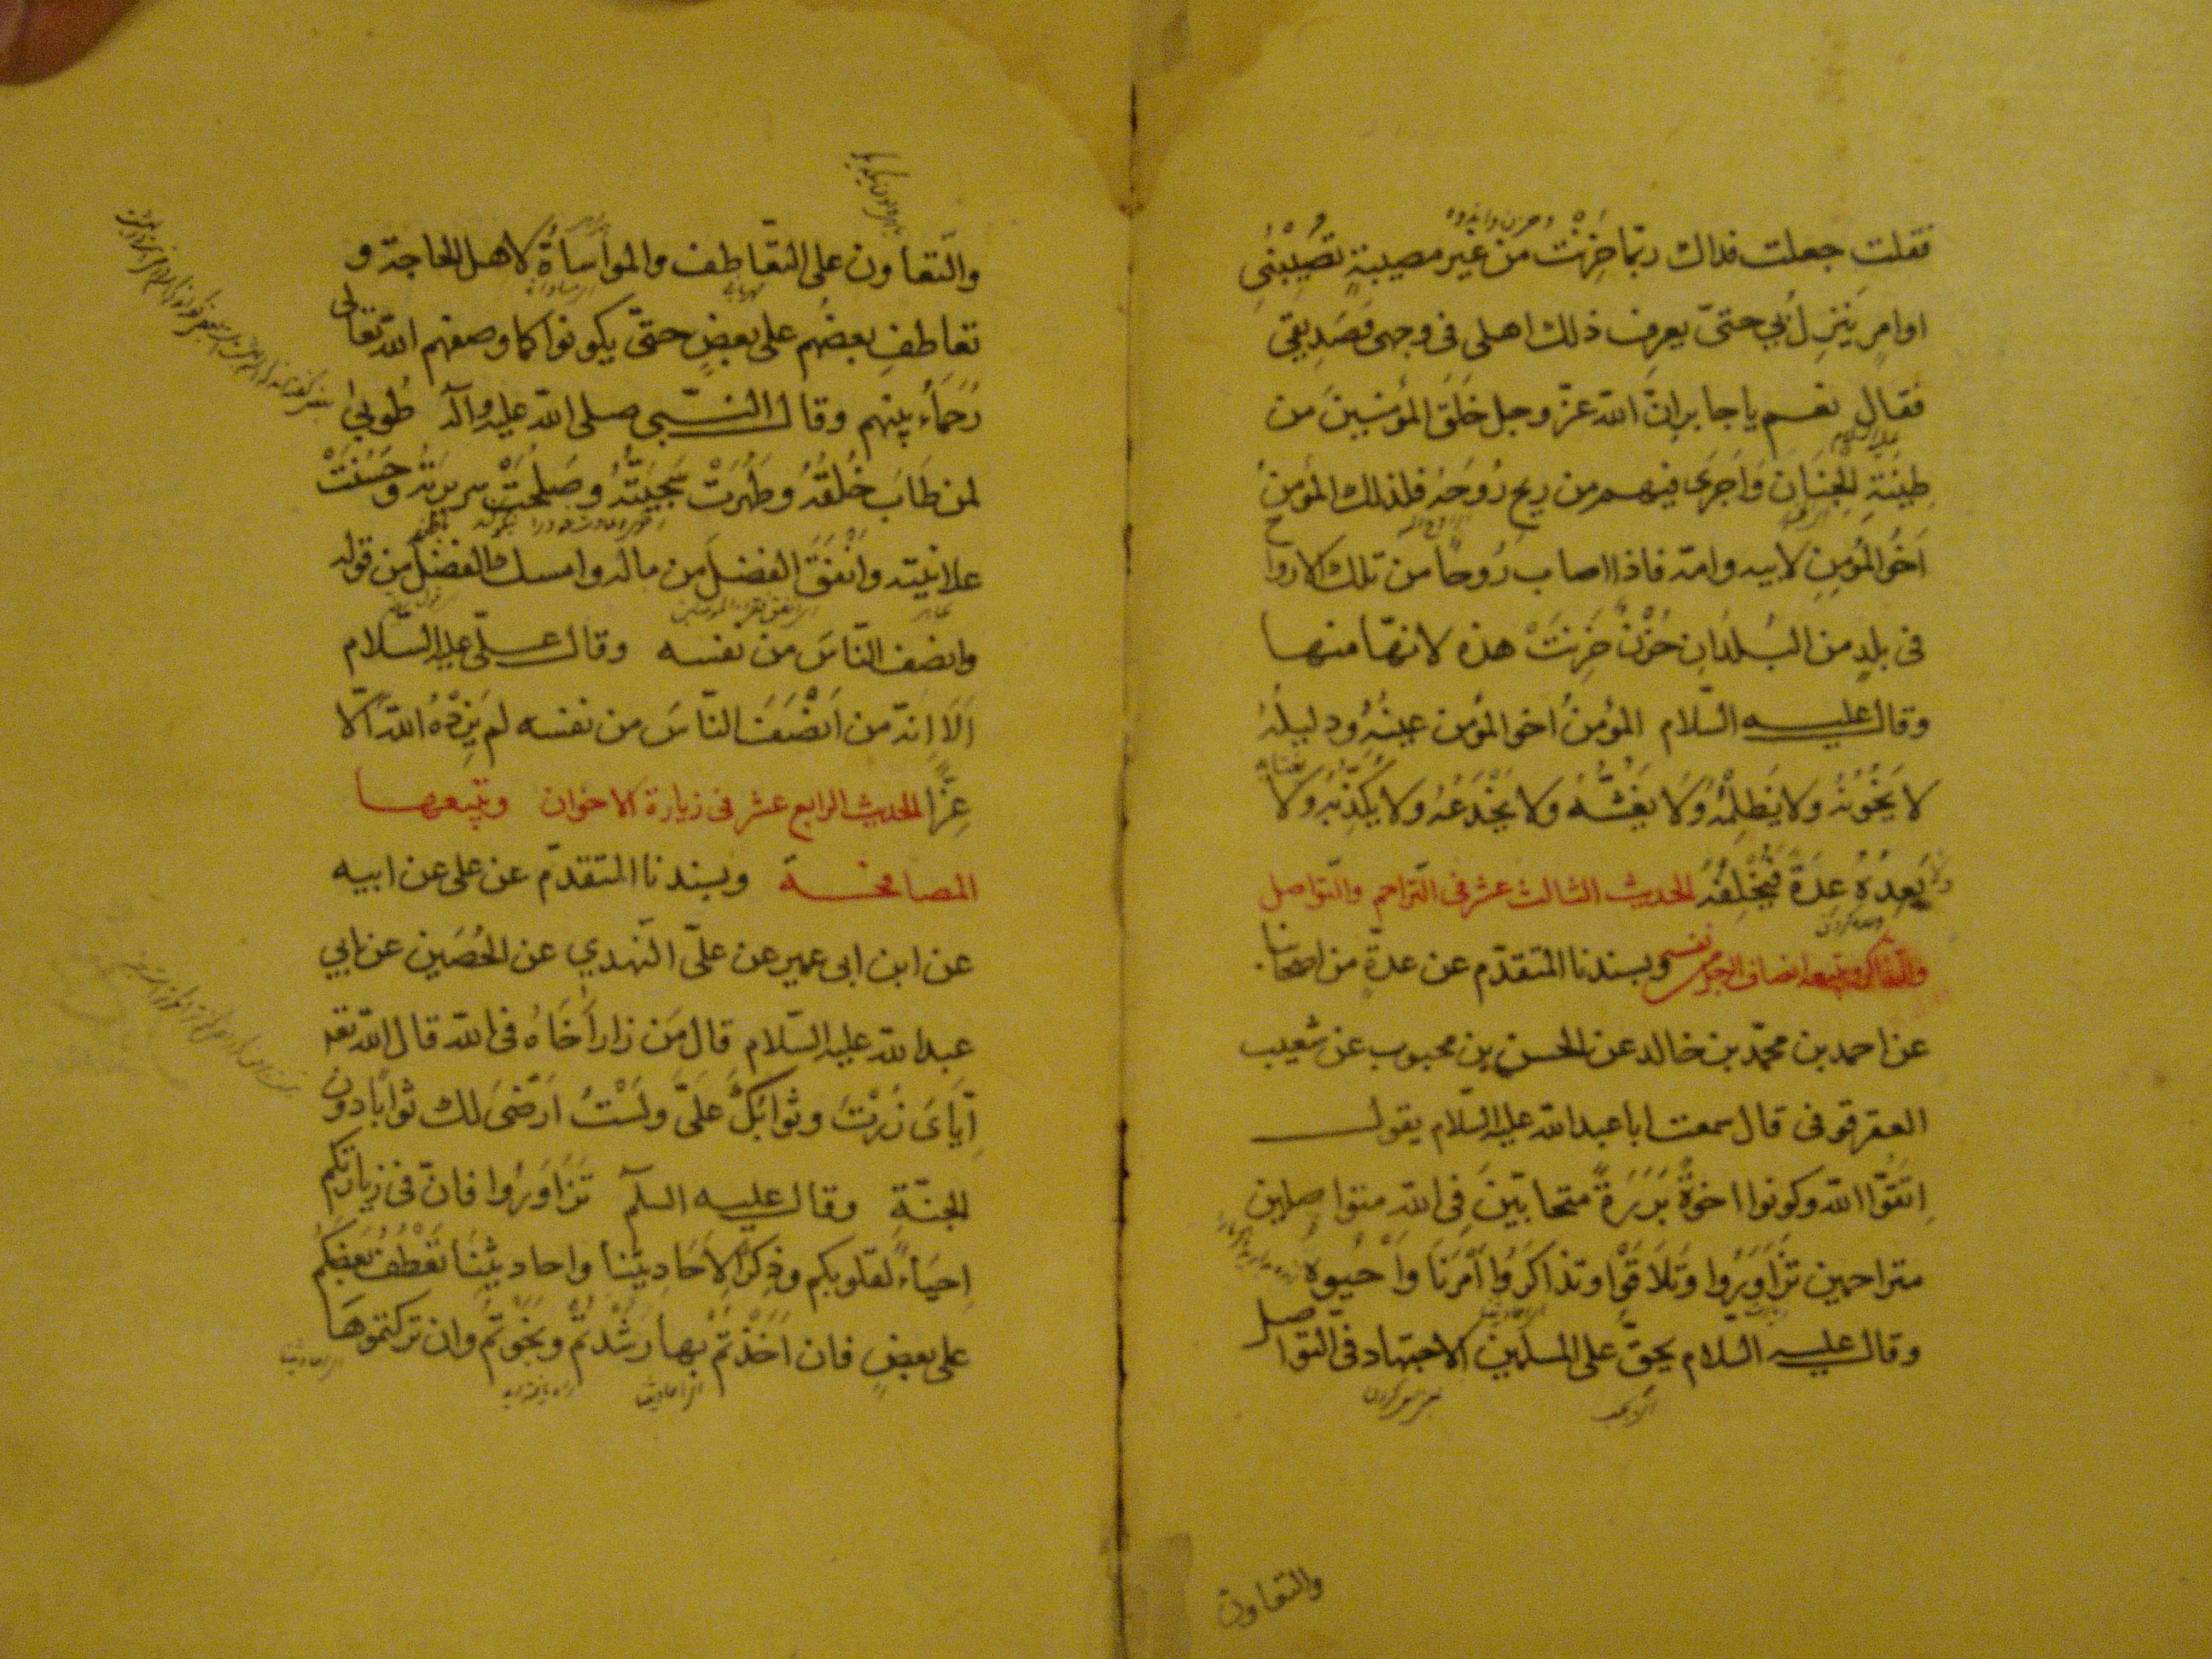 فقلت جعلت فداك ربّما حَزِنْتُ من غير مصيبةٍ تُصِيبُنِي
او امرٍ يَنزِلُ بي حتىّ يعرف ذلك اهلى فى وجهى وصَدِيقى
فقال نعم يا جابر انّ الله عزّ وجل خَلَقَ المؤمنينَ من
طِينَةِ الجِنَانِ وَاَجرَى فيهم من رِيحِ رُوحَهِ فلذلك المؤمنُ
اَخُو المؤمِنِ لابيه وامّه فاذا اصاب رُوحًا من تلك الارواح
فى بلدٍ من البُلدَانِ حُزْنٌ حَزِنَتْ هذه لانهّا منها
وقال عليه السّلام المؤمنُ اخو المؤمن عينُهُ ودليلُهُ
لا يَخُونُهُ ولا يَظلِمُهُ وَلا يَغُشُّهُ ولا يَخْدَعُهُ ولا يُكَذِّبُهُ ولا
يَعِدُهُ عِدَةً فَيُخْلِفُهُ الحديث الثالث عشر فى التّراحم والتّواصل
والتّذاكر ويتبعه انصاف الرجل من نفسه وبسندنا المتقدّم عن عدةٍ من اصحابنا
عن احمد بن محمّد بن خالد عن الحسن بن محبوب عن شعيب
العقرقوفى قال سمعت ابا عبد الله عليه السّلام يقول
اِتّقُوا الله وكونوا اخوةً بَرَرَةً متحابّينَ فِى اللهِ متواصلين
متراحمين تَزَاوَرُوا وَتَلاَقَوْا وتذاكَرُوا اَمْرَنَا وَاَحْيوه
وقال عليه السلام يحقّ على المسلمين الاجتهاد فى التّواصل
والتعاون
والتّعاون على التّعاطف والمواساةُ لاهل الحاجة و
تعاطفِ بعضُهم على بعضٍ حتىّ يكونوا كما وصفهم الله تعالى
رُحَمَاءُ بينهم وقال النبّى صلى الله عليه وآله طُوبىٰ
لمن طَابَ خُلقُهُ وطَهُرَتْ سَجِيَّتُهُ وصَلحَتْ سريرَتُهُ وحَسُنَتْ
علانيته واَنْفَقَ الفضلَ من ماله وامسك الفضلَ من قوله
وانصف النّاسَ من نفسه وقال علىّ عليه السّلام
اَلاَ اِنّه من اَنْصَفَ النّاسَ من نفسه لم يَزِدْهُ الله الّا
عِزًّا الحديث الرابع عشر فى زيارة الاخوان ويتبعها
المصافحة وبسندنا المتقدّم عن على عن ابيه
عن ابن ابى عمير عن علىّ النّهدي عن الحُصَين عن ابي
عبد الله عليه السّلام قال مَن زار اَخَاهُ فى الله قال الله تعـ
اِيّايَ زُرْتَ وثوابُكَ عَلىَّ ولَسْتُ اَرْضىَ لك ثوابًا دون
الجنّةِ وقال عليه السلم تَزَاوَرُوا فانّ فى زيارتكم
اِحيَاءً لقلوبكم وذِكرًا لاَحَادِيثنا واحاديثنا تَعْطفُ بَعضَكُم
على بعضٍ فان اَخَذْتمُ بها رَشَدْتُم ونجَوْتم وان تركتموهَا